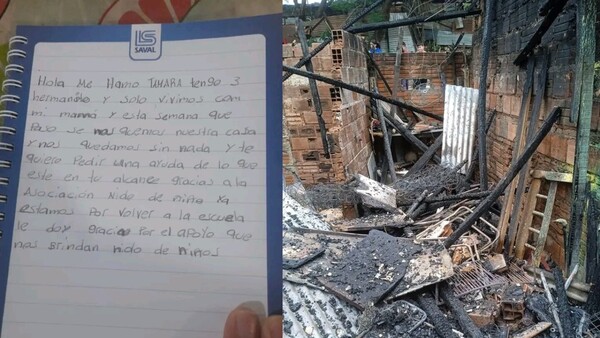 LS
SAVAL
Hola Me Llamo TAMARA tengo 3
hermanito y solo vivimos com
mi mamá y esta semana que
Paso se nos quemos nuestra casa
y nos quedamos sin nada y te
quiero Pedir una ayuda de lo que
este en tu alcance gracias a la
Asociación Nido de niño ya
estamos Por volver a la escuela
le doy gracia por el apoyo que
nos brindan nido de niños